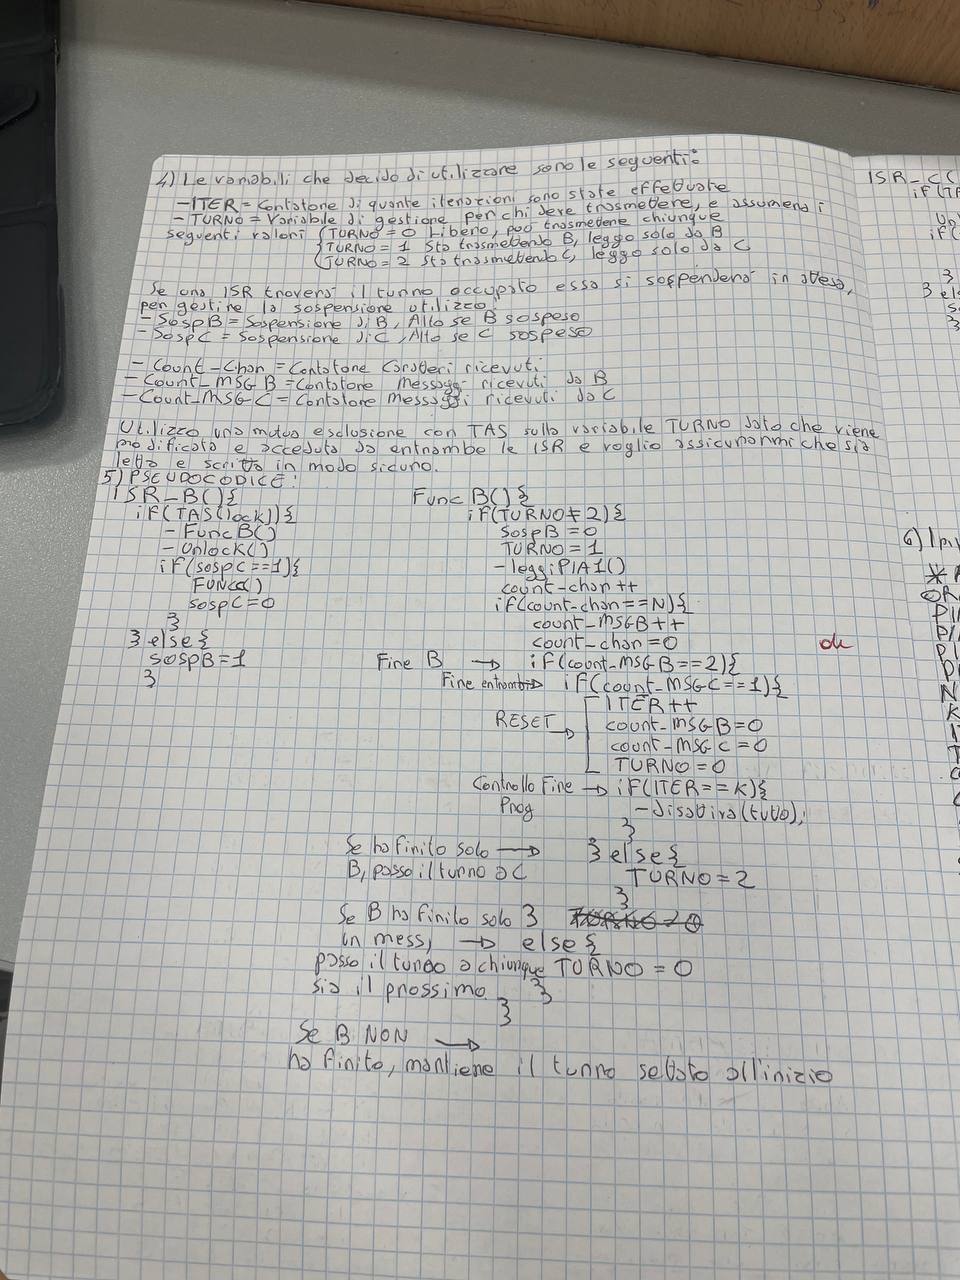 4) Le variabili che decido di utilizzare sono le seguenti:
-ITER = Contatore di quante iterazioni sono state effettuate
-TURNO = Variabile di gestione per chi deve trasmettere, e assumerà i
seguenti valori {TURNO = 0 Libero, può trasmettere chiunque
{TURNO = 1 Sta trasmettendo B, leggo solo da B
{TURNO = 2 Sta trasmettendo C, leggo solo da C
Se una ISR troverà il turno occupato essa si sospenderà in attesa,
per gestire la sospensione utilizzo:
-SospB = Sospensione di B, Alto se B sospeso
-SospC = Sospensione di C, Alto se C sospeso
-Count-Char = Contatore Caratteri ricevuti
-Count-MSG B = Contatore messaggi ricevuti da B
-Count-MSG C = Contatore messaggi ricevuti da C
Utilizzo una mutua esclusione con TAS sulla variabile TURNO dato che viene
modificata e acceduta da entrambe le ISR e voglio assicurarmi che sia
letta e scritta in modo sicuro.
5) PSEUDOCODICE:
ISR-B(){
if(TAS(lock)){
-FuncB()
-Unlock()
if(sospC==1){
FUNCC()
sospC=0
}
} else {
sospB=1
}
Func B(){
if(TURNO≠2){
SospB=0
TURNO=1
-leggiPIA1()
count-char++
if(count-char==N){
count-MSGB++
count-char=0
Fine B → if(count-MSGB==2){
Fine entrambi → if(count-MSGC==1){
ITER++
RESET → count-MSGB=0
count-MSGC=0
TURNO=0
Controllo Fine Prog → if(ITER==K){
-disattiva(tutto);
}
Se ho finito solo → } else {
B, passo il turno a C TURNO=2
}
Se B ho finito solo }
un mess, → else {
passo il turno a chiunque TURNO=0
sia il prossimo }
}
Se B NON →
ha finito, mantiene il turno settato all'inizio
ok
ISR-C(
if(TA
if(
}
} els
}
6)